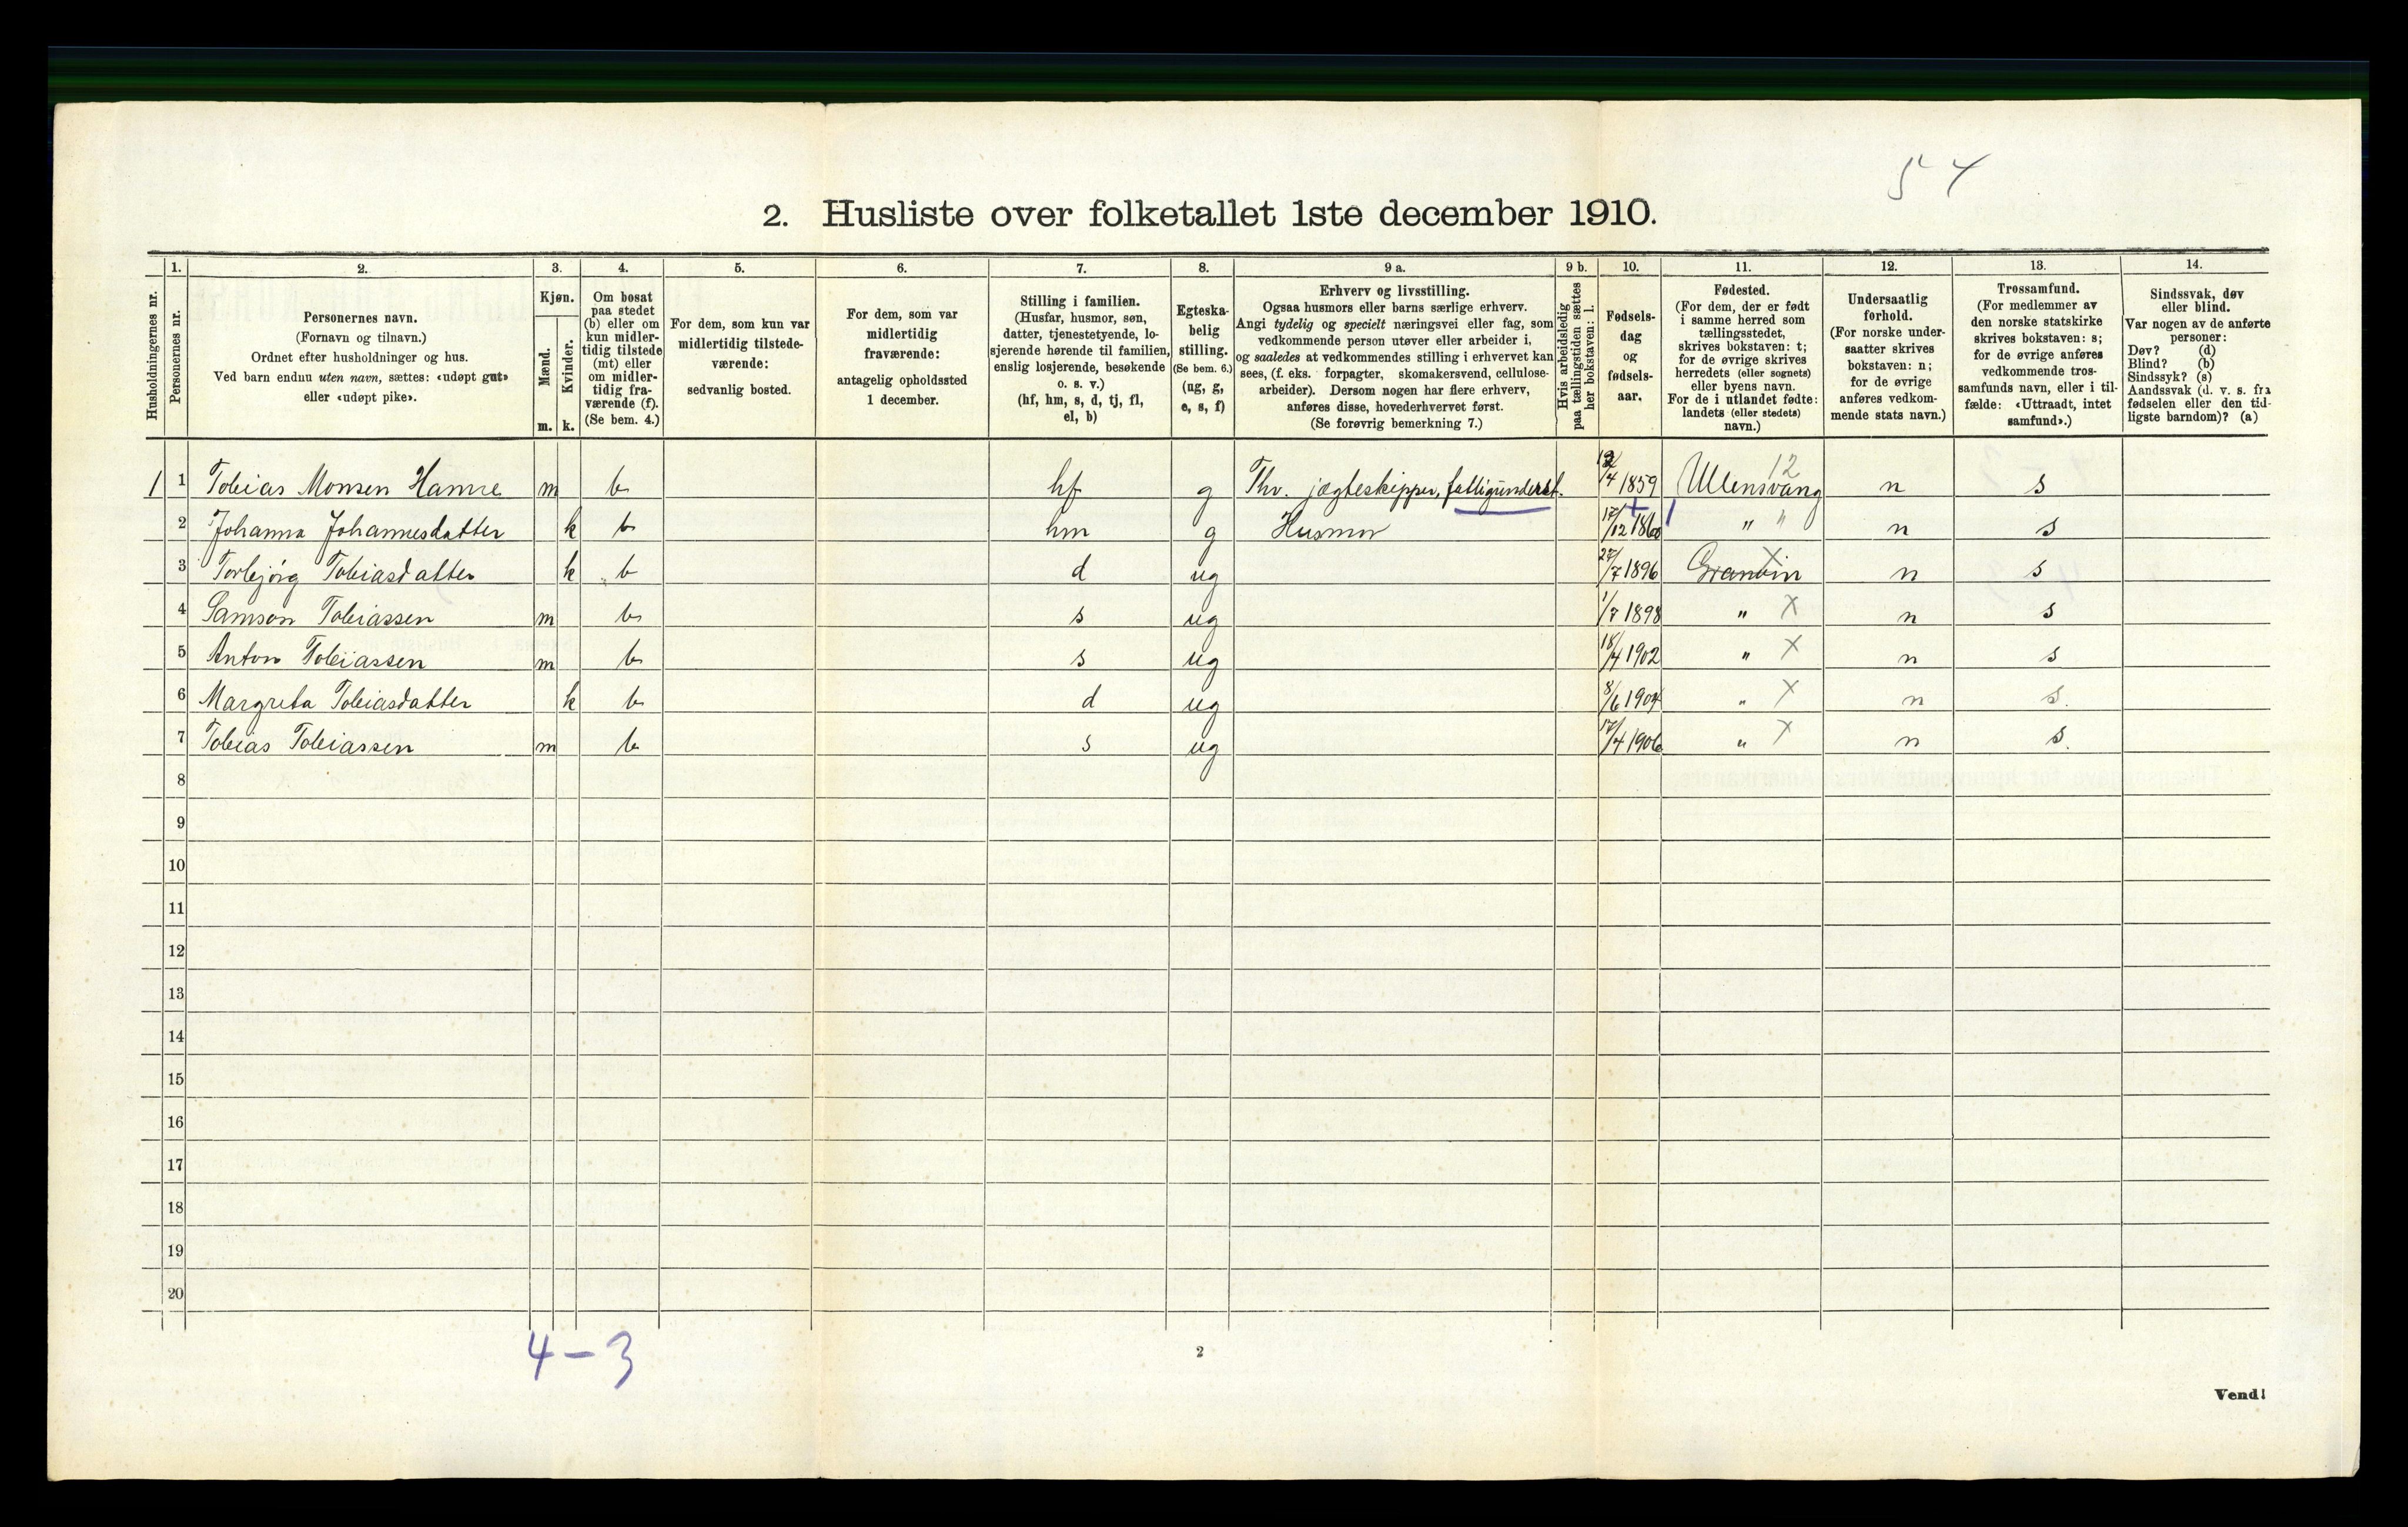 54
2. Husliste over folketallet 1ste december 1910.
Husholdningernes nr.
1.
Personernes nr.
2.
Personernes navn.
(Fornavn og tilnavn.)
Ordnet efter husholdninger og hus.
Ved barn endnu uten navn, sættes: «udøpt gut»
eller «udøpt pike».
3.
Kjøn.
Mænd.
Kvinder.
m. k.
4.
Om bosat
paa stedet
(b) eller om
kun midler-
tidig tilstede
(mt) eller
om midler-
tidig fra-
værende (f).
(Se bem. 4.)
5.
For dem, som kun var
midlertidig tilstede-
værende:
sedvanlig bosted.
6.
For dem, som var
midlertidig
fraværende:
antagelig opholdssted
1 december.
7.
Stilling i familien.
(Husfar, husmor, søn,
datter, tjenestetyende, lo-
sjerende hørende til familien,
enslig losjerende, besøkende
o. s. v.)
(hf, hm, s, d, tj, fl,
el, b)
8.
Egteska-
belig
stilling.
(Se bem. 6.)
(ug, g,
e, s, f)
9 a.
Erhverv og livsstilling.
Ogsaa husmors eller barns særlige erhverv.
Angi tydelig og specielt næringsvei eller fag, som
vedkommende person utøver eller arbeider i,
og saaledes at vedkommendes stilling i erhvervet kan
sees, (f. eks. forpagter, skomakersvend, cellulose-
arbeider). Dersom nogen har flere erhverv,
anføres disse, hovederhvervet først.
(Se forøvrig bemerkning 7.)
9 b.
Hvis arbeidsledig
paa tællingstiden sættes
her bokstaven: l.
10.
Fødsels-
dag
og
fødsels-
aar.
11.
Fødested.
(For dem, der er født
i samme herred som
tællingsstedet,
skrives bokstaven: t;
for de øvrige skrives
herredets (eller sognets)
eller byens navn.
For de i utlandet fødte:
landets (eller stedets)
navn.)
12.
Undersaatlig
forhold.
(For norske under-
saatter skrives
bokstaven: n;
for de øvrige
anføres vedkom-
mende stats navn.)
13.
Trossamfund.
(For medlemmer av
den norske statskirke
skrives bokstaven: s;
for de øvrige anføres
vedkommende tros-
samfunds navn, eller i til-
fælde: «Uttraadt, intet
samfund».)
14.
Sindssvak, døv
eller blind.
Var nogen av de anførte
personer:
Døv? (d)
Blind? (b)
Sindssyk? (s)
Aandssvak (d. v. s. fra
fødselen eller den tid-
ligste barndom)? (a)
1 1 Tobias Monsen Hamre m b hf g Thv. jægteskipper, fattigunderst. /4 1859 Ullensvang 12 n s
2 Johanna Johannesdatter k b hm g Husmor 17/12 1860 " " n s
3 Torbjörg Tobiasdatter k b d ug 27/7 1896 Granvin X n s
4 Samson Tobiassen m b s ug 1/7 1898 " X n s
5 Anton Tobiassen m b s ug 18/4 1902 " X n s
6 Margreta Tobiasdatter k b d ug 8/6 1904 " X n s.
7 Tobias Tobiassen m b s ug 17/4 1906 " X n s.
8
9
10
11
12
13
14
15
16
17
18
19
20
4-3
2
Vend!